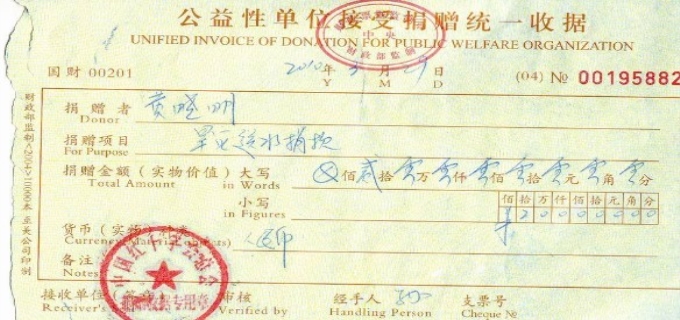 公益性单位接受捐赠统一收据
UNIFIED INVOICE OF DONATION FOR PUBLIC WELFARE ORGANIZATION
中央
财政部监制
国财 00201
2010年3月29日
Y M D
(04) № 00195882
捐赠者 黄晓明
Donor
捐赠项目 旱灾送水捐款
For Purpose
捐赠金额（实物价值）大写 ⊗佰贰拾零万零仟零佰零拾零元零角零分
Total Amount in Words
小写 佰拾万仟佰拾元角分
in Figures ¥20000000
货币（实物） 人民币
Currency
备注
Notes
接收单位 审核 经手人 支票号
Receiver's Verified by Handling Person Cheque №
财政部监制<2004>10000本
公司印制
中国红十字基金会
专用章